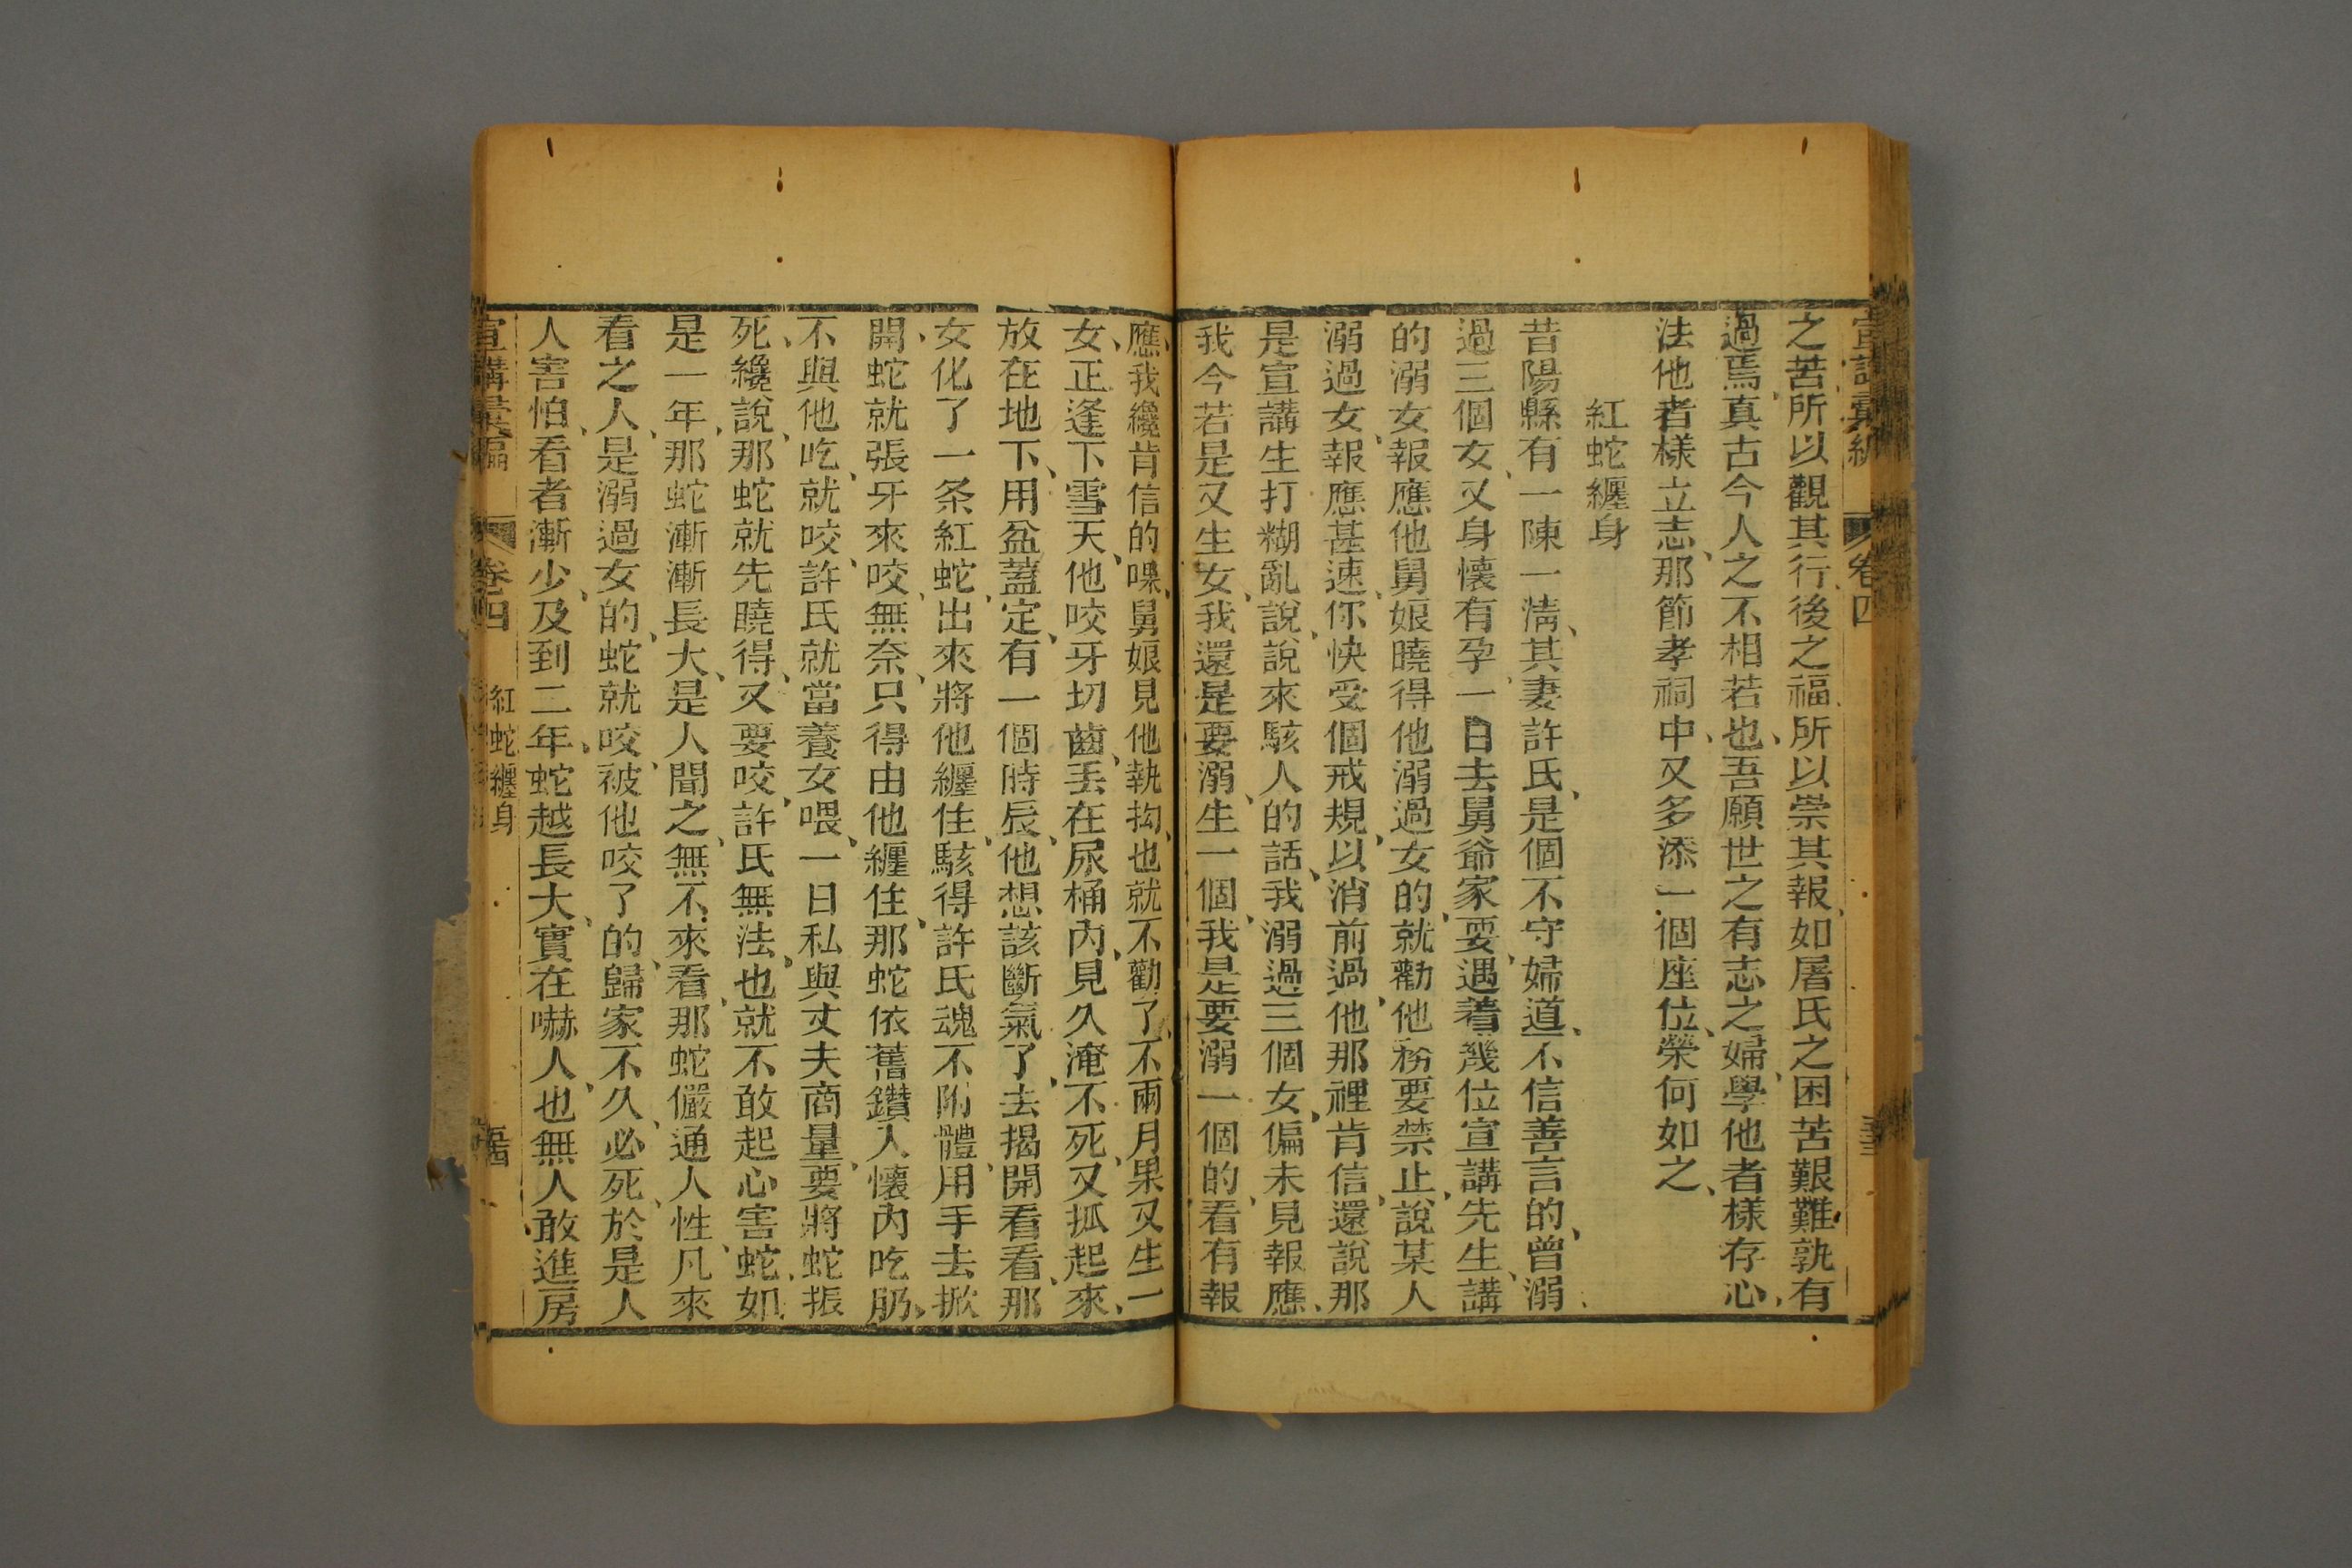 宣講彙編 卷四
之苦所以觀其行、後之福、所以崇其報、如屠氏之困苦艱難、孰有
過焉、真古今人之不相若也、吾願世之有志之婦、學他者樣存心、
法他者樣立志、那節孝祠中、又多添一個座位、榮何如之、
紅蛇纏身
昔陽縣有一陳一清、其妻許氏、是個不守婦道、不信善言的、曾溺
過三個女、又身懷有孕、一日去舅爺家耍、遇着幾位宣講先生、講
的溺女報應、他舅娘曉得他溺過女的、就勸他務要禁止、說某人
溺過女、報應甚速、你快受個戒規、以消前過、他那裡肯信、還說那
是宣講生打糊亂說、說來駭人的話、我溺過三個女、偏未見報應、
我今若是又生女、我還是要溺、生一個、我是要溺一個的、看有報
應、我纔肯信的嘿、舅娘見他執拗、也就不勸了、不兩月果又生一
女、正逢下雪天、他咬牙切齒、丟在尿桶內、見久淹不死、又抓起來、
放在地下、用盆蓋定、有一個時辰、他想該斷氣了、去揭開看看、那
女化了一条紅蛇、出來將他纏住、駭得許氏魂不附體、用手去掀
開、蛇就張牙來咬、無奈、只得由他纏住、那蛇依舊鑽入懷內吃肭、
不與他吃、就咬、許氏就當養女喂、一日私與丈夫商量、要將蛇振
死、纔說、那蛇就先曉得、又要咬、許氏無法、也就不敢起心害蛇、如
是一年、那蛇漸漸長大、是人聞之、無不來看、那蛇儼通人性、凡來
看之人、是溺過女的、蛇就咬、被他咬了的、歸家不久、必死、於是人
人害怕、看者漸少、及到二年、蛇越長大、實在嚇人、也無人敢進房
宣講彙編 卷四 紅蛇纏身 五四